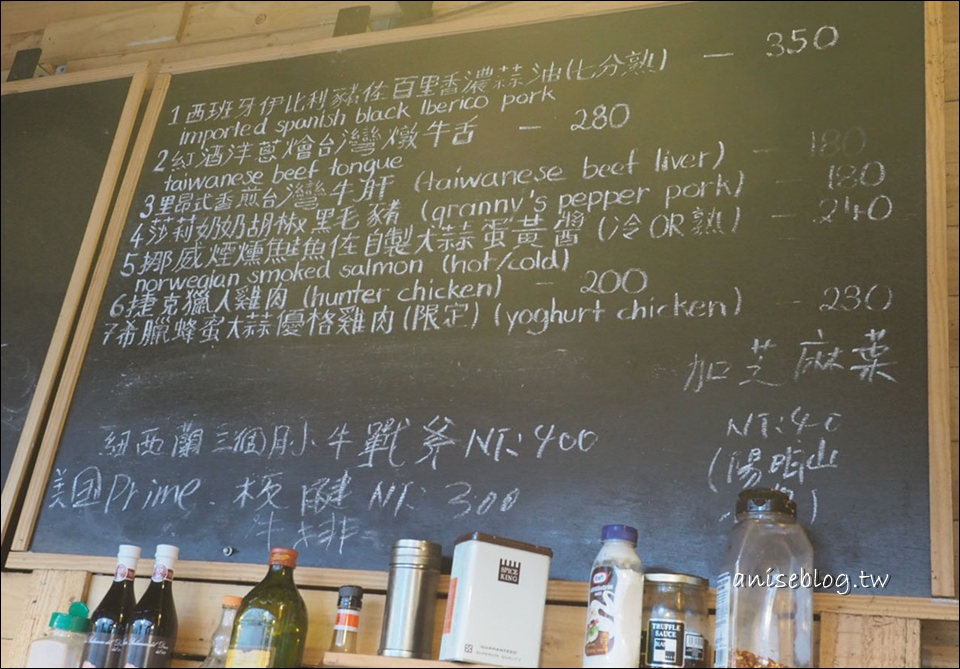 1 西班牙伊比利豬佐百里香濃蒜油(七分熟) — 350
imported spanish black Iberico pork
2 紅酒洋蔥燴台灣燉牛舌 — 280
taiwanese beef tongue
3 里昂式香煎台灣牛肝 (taiwanese beef liver) — 180
4 莎莉奶奶胡椒黑毛豬 (granny's pepper pork) — 180
5 挪威煙燻鮭魚佐自製大蒜蛋黃醬(冷OR熱) — 240
norwegian smoked salmon (hot/cold)
6 捷克獵人雞肉 (hunter chicken) — 200
7 希臘蜂蜜大蒜優格雞肉(限定)(yoghurt chicken) — 230
加芝麻葉
NT:40
(陽明山
紐西蘭三個月小牛戰斧 NT:400
美國Prime 板腱 NT:300
牛排
SPICE KING
TRUFFLE SAUCE
aniseblog.tw